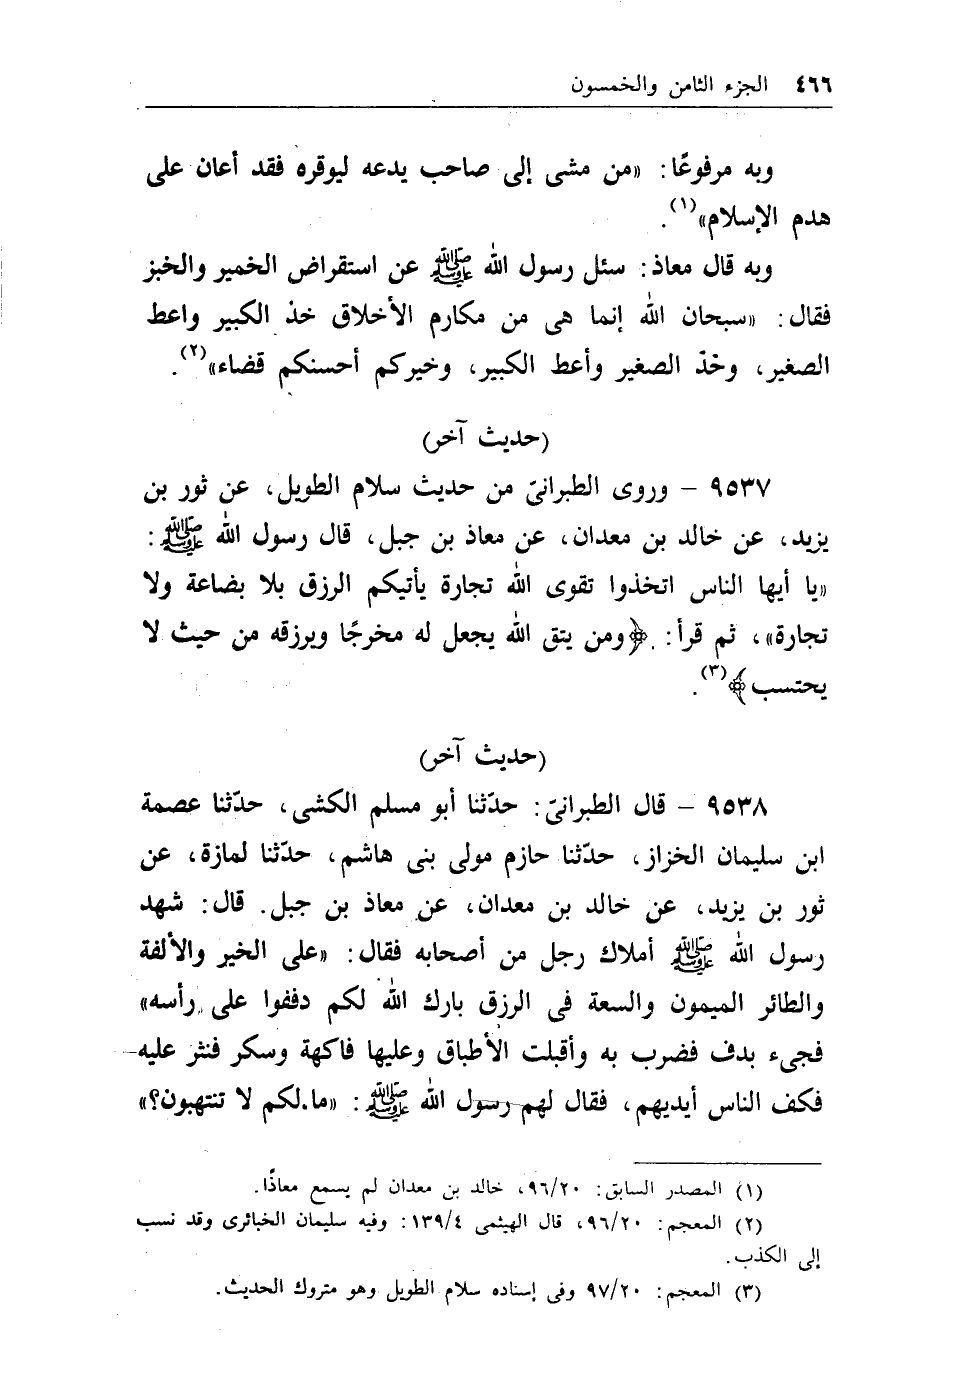 ٤٦٦ الجزء الثامن والخمسون
وبه مرفوعًا: «من مشى إلى صاحب يدعه ليوقره فقد أعان على
هدم الإسلام»(١).
وبه قال معاذ: سئل رسول الله ﷺ عن استقراض الخمير والخبز
فقال: «سبحان الله إنما هى من مكارم الأخلاق خذ الكبير واعط
الصغير، وخذ الصغير وأعط الكبير، وخيركم أحسنكم قضاء»(٢).
(حديث آخر)
٩٥٣٧ – وروى الطبرانىّ من حديث سلام الطويل، عن ثور بن
يزيد، عن خالد بن معدان، عن معاذ بن جبل، قال رسول الله ﷺ:
«يا أيها الناس اتخذوا تقوى الله تجارة يأتيكم الرزق بلا بضاعة ولا
تجارة»، ثم قرأ: ﴿ومن يتق الله يجعل له مخرجًا ويرزقه من حيث لا
يحتسب﴾(٣).
(حديث آخر)
٩٥٣٨ – قال الطبرانىّ: حدّثنا أبو مسلم الكشى، حدّثنا عصمة
ابن سليمان الخزاز، حدّثنا حازم مولى بنى هاشم، حدّثنا لمازة، عن
ثور بن يزيد، عن خالد بن معدان، عن معاذ بن جبل. قال: شهد
رسول الله ﷺ أملاك رجل من أصحابه فقال: «على الخير والألفة
والطائر الميمون والسعة فى الرزق بارك الله لكم دففوا على رأسه»
فجىء بدف فضرب به وأقبلت الأطباق وعليها فاكهة وسكر فنثر عليه
فكف الناس أيديهم، فقال لهم رسول الله ﷺ: «ما لكم لا تنتهبون؟»
(١) المصدر السابق: ٩٦/٢٠، خالد بن معدان لم يسمع معاذًا.
(٢) المعجم: ٩٦/٢٠، قال الهيثمى ١٣٩/٤: وفيه سليمان الخبائرى وقد نسب
إلى الكذب.
(٣) المعجم: ٩٧/٢٠ وفى إسناده سلام الطويل وهو متروك الحديث.